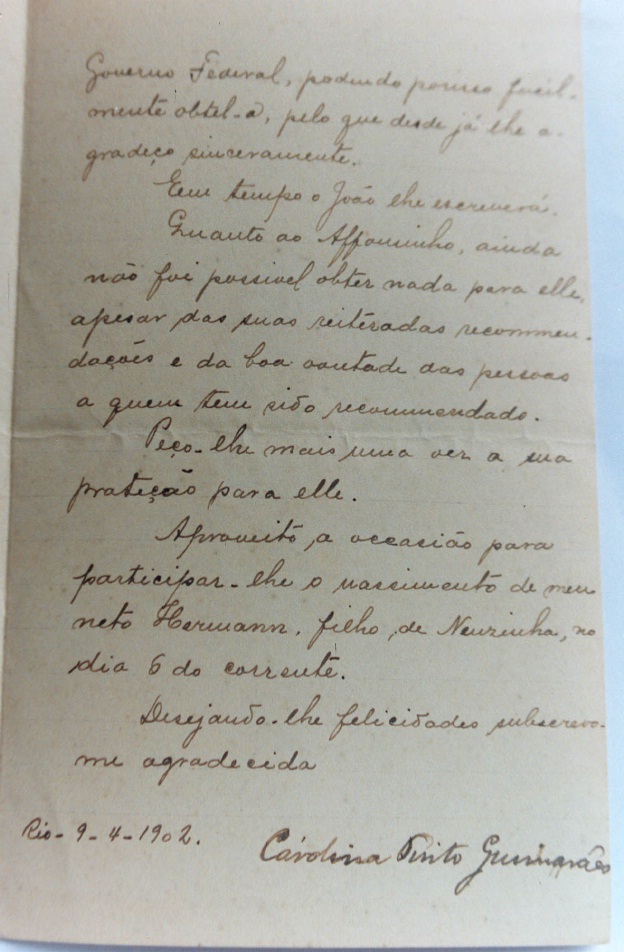 Governo Federal, podendo porisso facil-
mente obtel-a, pelo que desde já lhe a-
gradeço sinceramente.
Em tempo o João lhe escreverá.
Quanto ao Affonsinho, ainda
não foi possivel obter nada para elle,
apesar das suas reitéradas recommen-
dações e da boa vontade das pessoas
a quem tem sido recommendado.
Peço-lhe mais uma vez a sua
proteção para elle.
Aproveito a occasião para
participar-lhe o nascimento de meu
neto Hermann, filho de Neuzinha, no
dia 6 do corrente.
Desejando-lhe felicidades subscrevo-
me agradecida
Rio-9-4-1902.
Carolina Pinto Guimarães